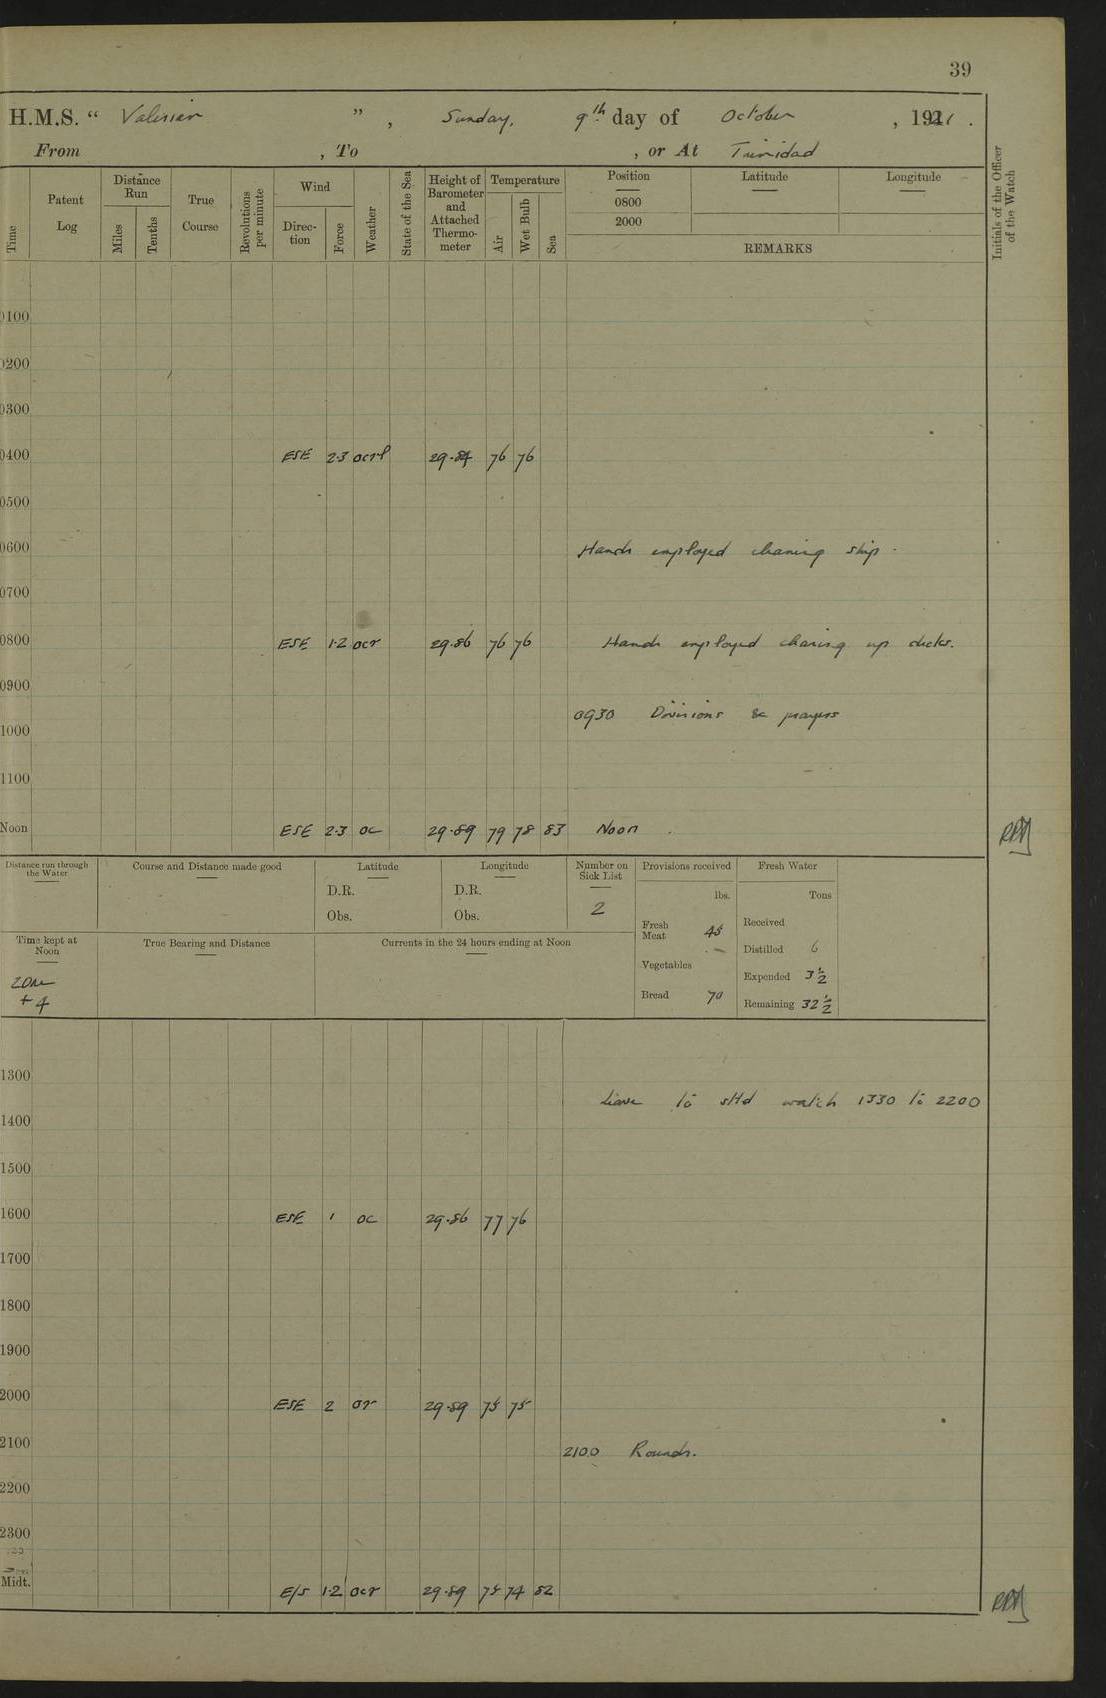 39
H.M.S. “ Valerian ” , Sunday, 9th day of October , 1921 .
From , To , or At Trinidad
Time
Patent Log
Distance Run
Miles
Tenths
True Course
Revolutions per minute
Wind
Direc-tion
Force
Weather
State of the Sea
Height of Barometer and Attached Thermo-meter
Temperature
Air
Wet Bulb
Sea
Position
0800
2000
Latitude
Longitude
REMARKS
Initials of the Officer of the Watch
0100
0200
0300
0400 ESE 2·3 29·84 76 76
0500
0600 Hands employed cleaning ship.
0700
0800 ESE 1·2 ocr 29·86 76 76 Hands employed clearing up decks.
0900
0930 Divisions & prayers
1000
1100
Noon ESE 2·3 oc 29·89 79 78 83 Noon .
Distance run through the Water
Course and Distance made good
Latitude
D.R.
Obs.
Longitude
D.R.
Obs.
Number on Sick List
2
Provisions received
lbs.
Fresh Meat 45
Vegetables -
Bread 70
Fresh Water
Tons
Received
Distilled 6
Expended 3½
Remaining 32½
Time kept at Noon
Zone + 4
True Bearing and Distance
Currents in the 24 hours ending at Noon
1300
Leave to stbd watch 1330 to 2200
1400
1500
1600 ESE 1 oc 29·86 77 76
1700
1800
1900
2000 ESE 2 or 29·89 75 75
2100 2100 Rounds.
2200
2300
Midt. E/S 1·2 ocr 29·89 75 74 82